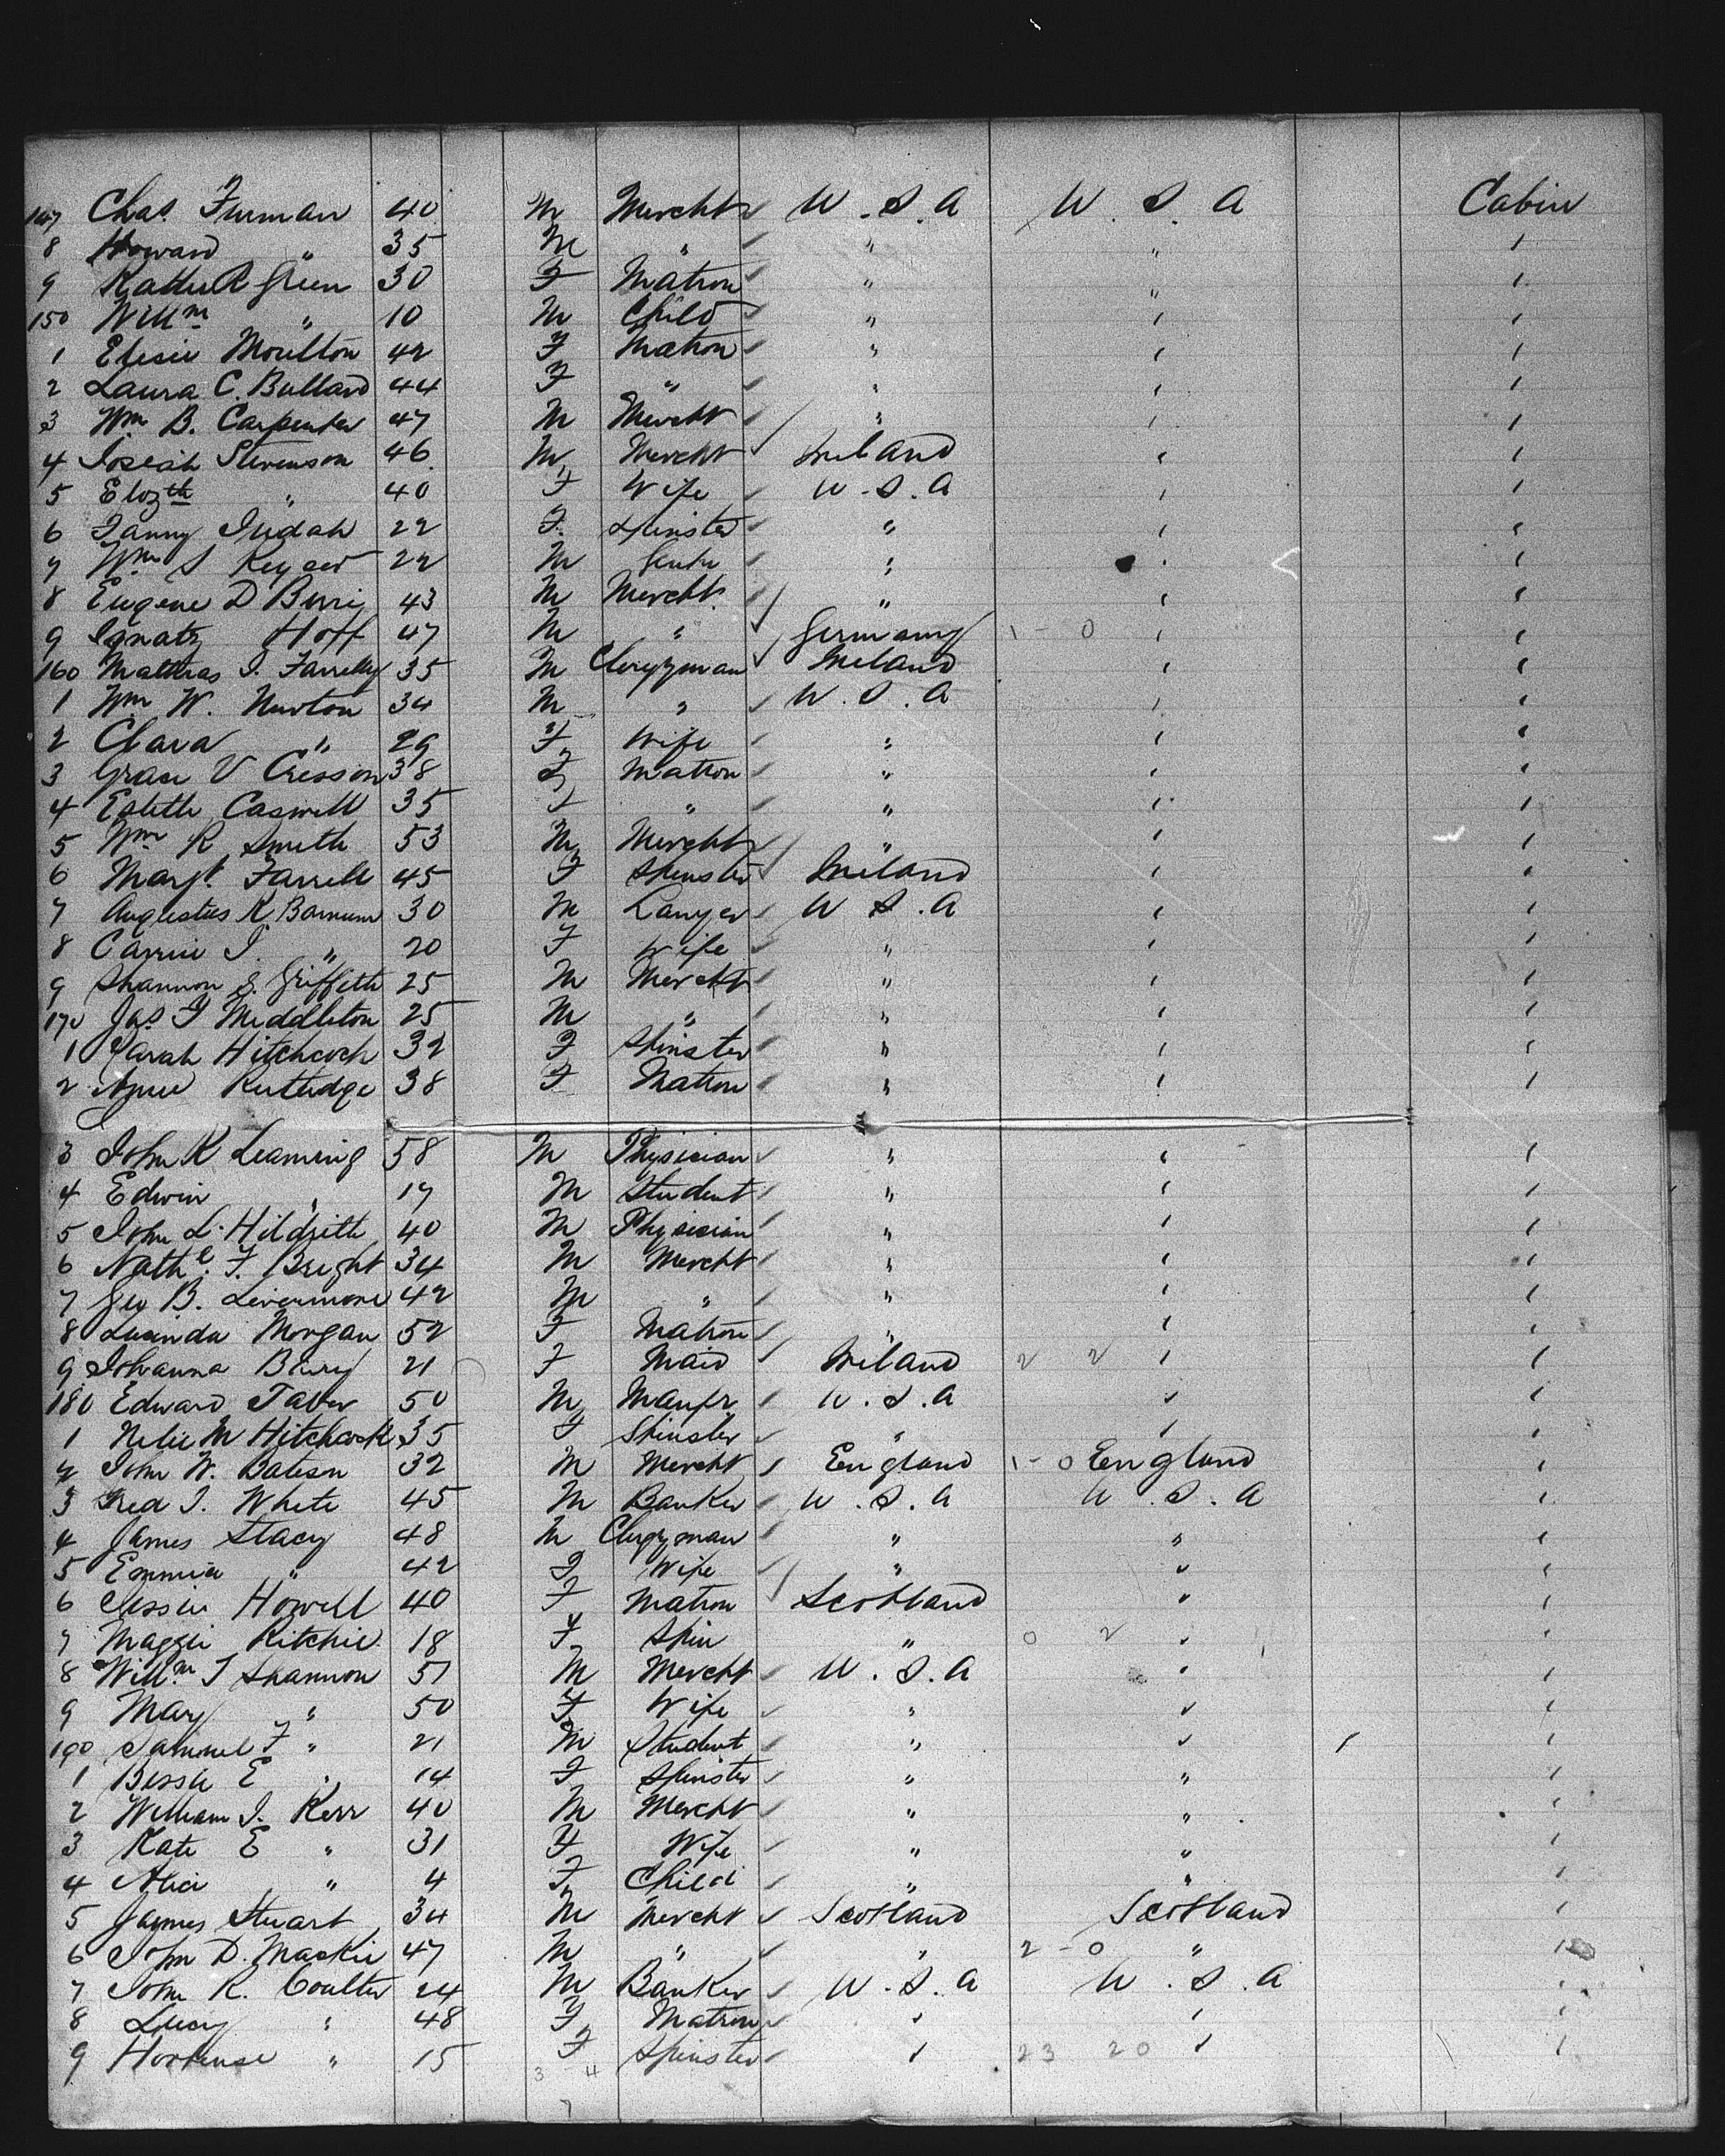 147 Chas Furman 40 M Mercht U.S.A U.S.A Cabin
8 Howard " 35 M " " " "
9 R Green 30 F Matron " " "
150 Willm " 10 M Child " " "
1 Moulton 42 F Matron " " "
2 Laura C. Bullard 44 F " " " "
3 Wm B. Carpenter 47 M Mercht " " "
4 Josiah Stevenson 46 M Mercht Ireland " "
5 Elizth " 40 F Wife U.S.A " "
6 Fanny Judah 22 F. Spinster " " "
7 Wm S Keyser 22 M Gentn " " "
8 Eugene D Berri 43 M Mercht. " " "
9 Ignatz Hoff 47 M " Germany 1-0 " "
160 Matthias J. Farrelly 35 M Clergyman Ireland " "
1 Wm W. Newton 34 M " U.S.A " "
2 Clara " 29 F Wife " " "
3 Grace V Cresson 38 F Matron " " "
4 Caswell 35 F " " " "
5 Wm R Smith 53 M Mercht " " "
6 Margt. Farrell 45 F Spinster Ireland " "
7 Augustus K Barnum 30 M Lawyer U.S.A " "
8 Carrie J. " 20 F Wife " " "
9 Shannon S. Griffith 25 M Mercht " " "
170 Jas F Middleton 25 M " " " "
1 Sarah Hitchcock 32 F Spinster " " "
2 Rutledge 38 F Matron " " "
3 John K Leaming 58 M Physician " " "
4 Edwin " 17 M Student " " "
5 John L. Hildrith 40 M Physician " " "
6 Nathl. F. Bright 34 M Mercht " " "
7 Geo B. Livermore 42 M " " " "
8 Lucinda Morgan 52 F Matron " " "
9 Johanna Barry 21 F Maid Ireland 2 2 " "
180 Edward Taber 50 M Manfr. U.S.A " "
1 Nelie M Hitchcock 35 F Spinster " " "
2 John W. Bateson 32 M Mercht England 1-0 England "
3 Fred J. White 45 M Banker U.S.A U.S.A "
4 James Stacy 48 M Clergyman " " "
5 Emmia " 42 F Wife " " "
6 Jessie Howell 40 F Matron Scotland " "
7 Maggie Ritchie 18 F Spin " 0 2 " "
8 Willm J Shannon 51 M Mercht U.S.A " "
9 Mary " 50 F Wife " " "
190 Samuel F " 21 M Student " " "
1 Bessie E " 14 F Spinster " " "
2 William J. Kerr 40 M Mercht " " "
3 Kate E " 31 F Wife " " "
4 Alice " 4 F Child " " "
5 James Stuart 34 M Mercht Scotland Scotland "
6 John D. Mackie 47 M " " 2-0 " "
7 John R. Coulter 24 M Banker U.S.A U.S.A "
8 Lucy " 48 F Matron " " "
9 Hortense " 15 F Spinster " 23 20 " "
3 4
7